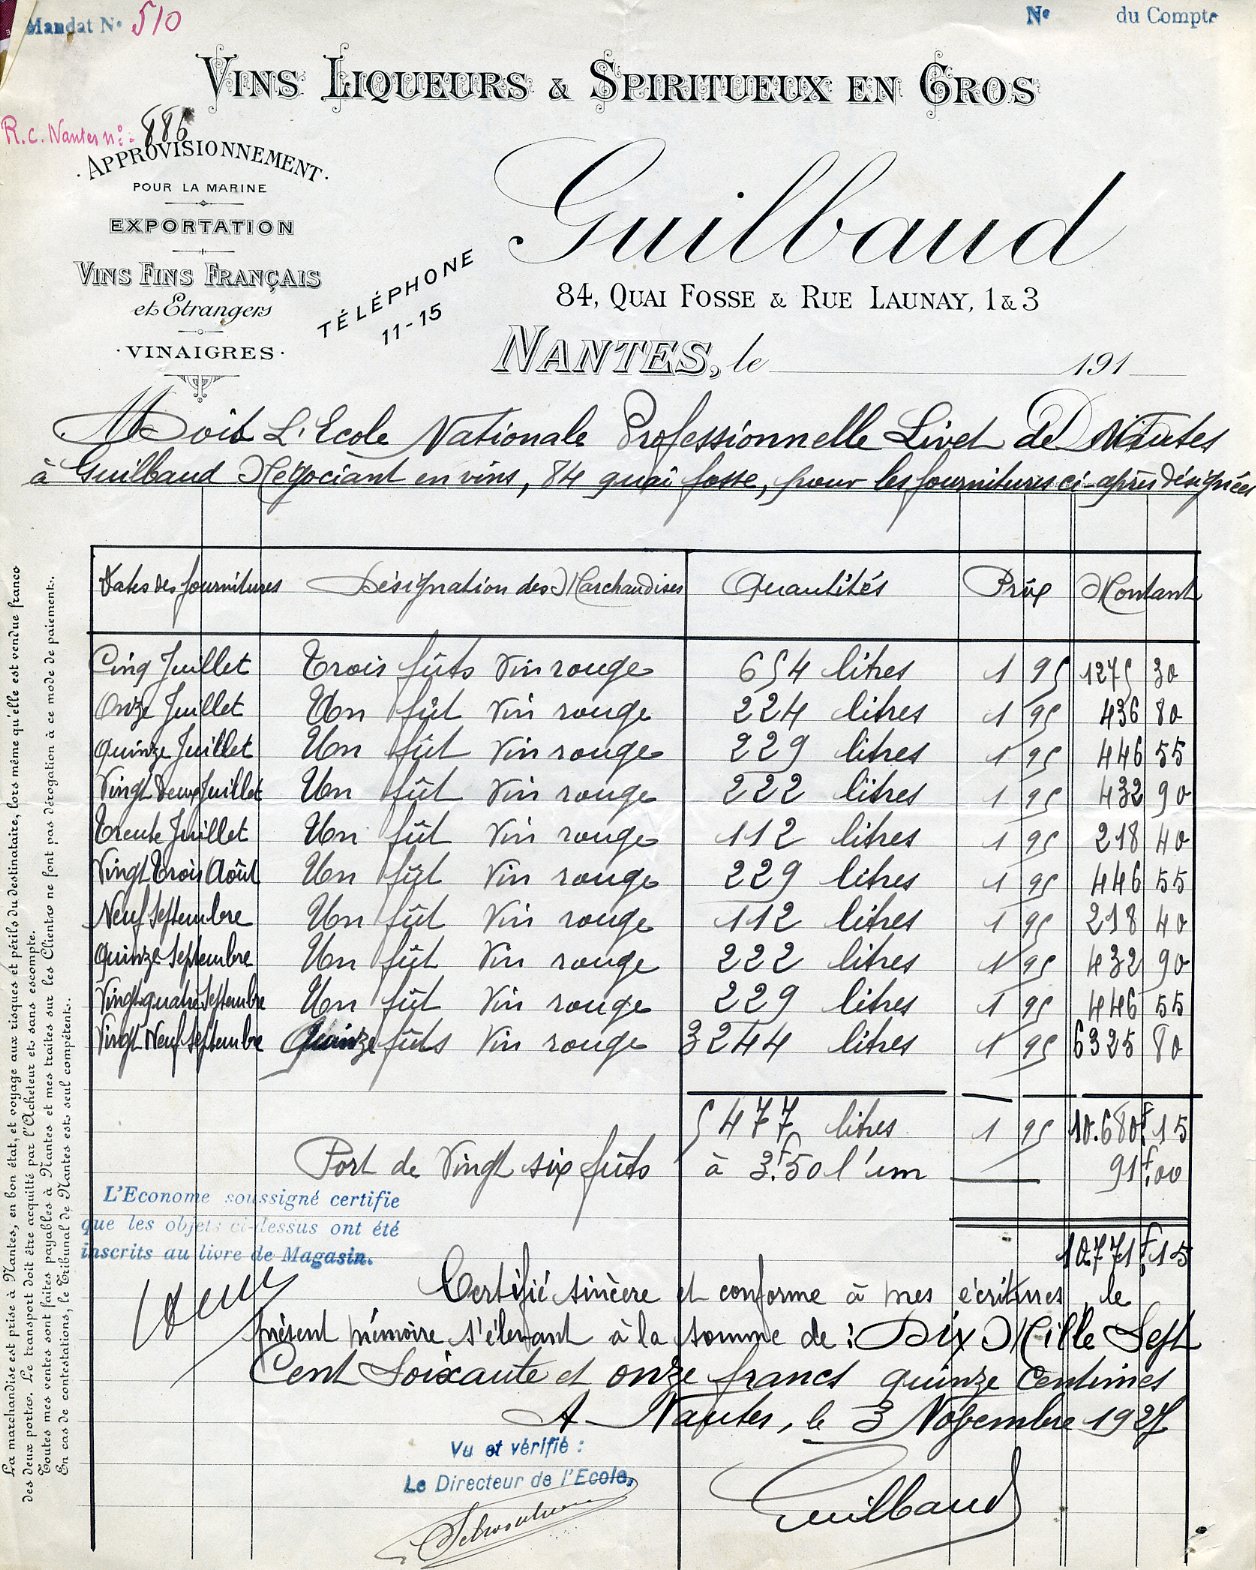 Mandat N° 510
N° du Compte
VINS LIQUEURS & SPIRITUEUX EN GROS
R.C. Nantes n°: 886
APPROVISIONNEMENT
POUR LA MARINE
EXPORTATION
VINS FINS FRANÇAIS
et Etrangers
VINAIGRES
TÉLÉPHONE
11-15
Guilbaud
84, QUAI FOSSE & RUE LAUNAY, 1 & 3
NANTES, le 191
Doit L'Ecole Nationale Professionnelle Livet de Nantes
à Guilbaud Négociant en vins, 84 quai fosse, pour les fournitures ci-après désignées
Dates des fournitures Désignation des Marchandises Quantités Prix Montant
Cinq Juillet Trois fûts Vin rouge 654 litres 1 95 1275 30
Onze Juillet Un fût Vin rouge 224 litres 1 95 436 80
Quinze Juillet Un fût Vin rouge 229 litres 1 95 446 55
Vingt Deux Juillet Un fût Vin rouge 222 litres 1 95 432 90
Trente Juillet Un fût Vin rouge 112 litres 1 95 218 40
Vingt Trois Août Un fût Vin rouge 229 litres 1 95 446 55
Neuf Septembre Un fût Vin rouge 112 litres 1 95 218 40
Quinze Septembre Un fût Vin rouge 222 litres 1 95 432 90
Vingt quatre Septembre Un fût Vin rouge 229 litres 1 95 446 55
Vingt Neuf Septembre Quinze fûts Vin rouge 3244 litres 1 95 6325 80
5477 litres 1 95 10.680f.15
Port de Vingt six fûts à 3f.50 l'un 91f.00
10.771f.15
L'Econome soussigné certifie
que les objets ci-dessus ont été
inscrits au livre de Magasin.
Certifié sincère et conforme à mes écritures, le
présent mémoire s'élevant à la somme de : Dix Mille Sept
Cent Soixante et onze francs quinze Centimes
A Nantes, le 3 Novembre 1927
Vu et vérifié :
Le Directeur de l'Ecole,
Guilbaud
La marchandise est prise à Nantes, en bon état, et voyage aux risques et périls du destinataire, lors même qu'elle est vendue franco
des deux ports. Le transport doit être acquitté par l'Acheteur et sans escompte.
Toutes mes ventes sont faites payables à Nantes et mes traites sur les Clients ne font pas dérogation à ce mode de paiement.
En cas de contestations, le Tribunal de Nantes est seul compétent.